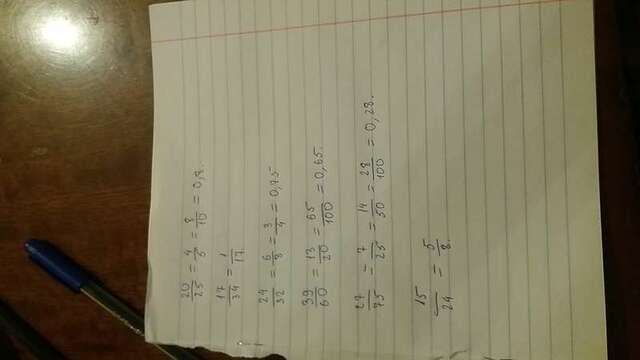 20/25 = 4/5 = 8/10 = 0,8.
17/34 = 1/17
24/32 = 6/8 = 3/4 = 0,75
39/60 = 13/20 = 65/100 = 0,65.
27/75 = 7/25 = 14/50 = 28/100 = 0,28.
15/24 = 5/8.